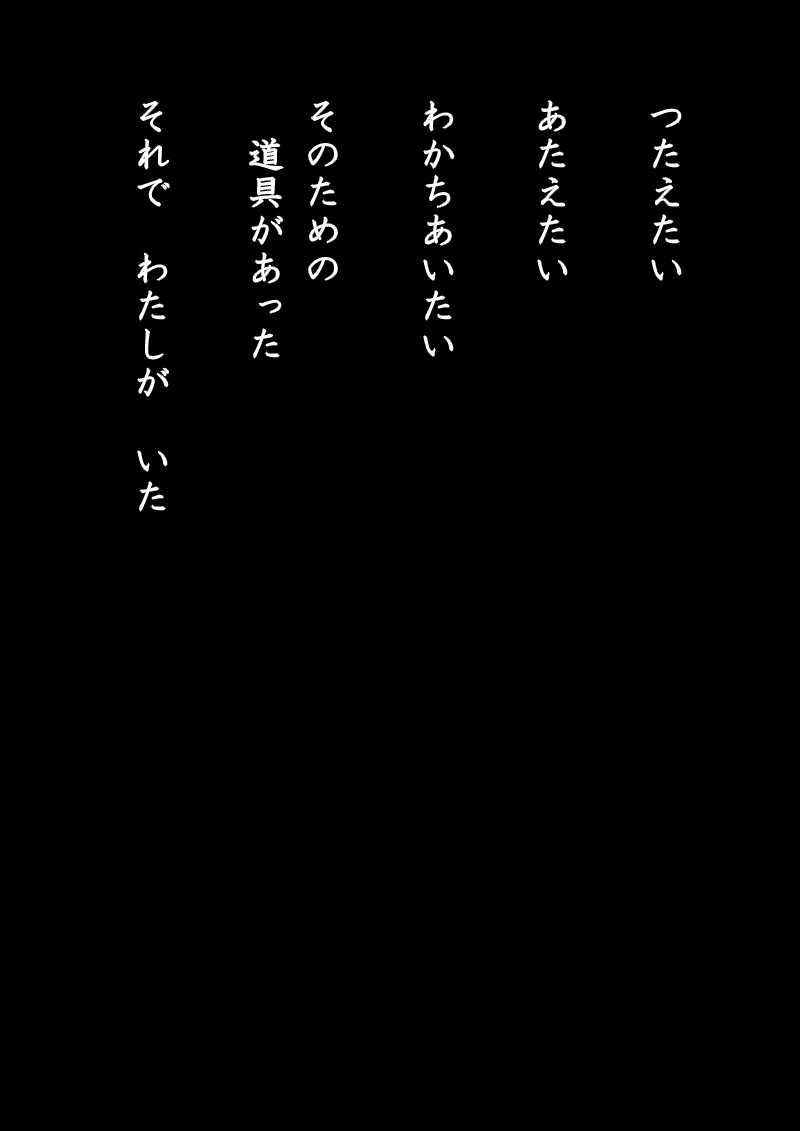 つたえたい
あたえたい
わかちあいたい
そのための
道具があった
それで　わたしが　いた